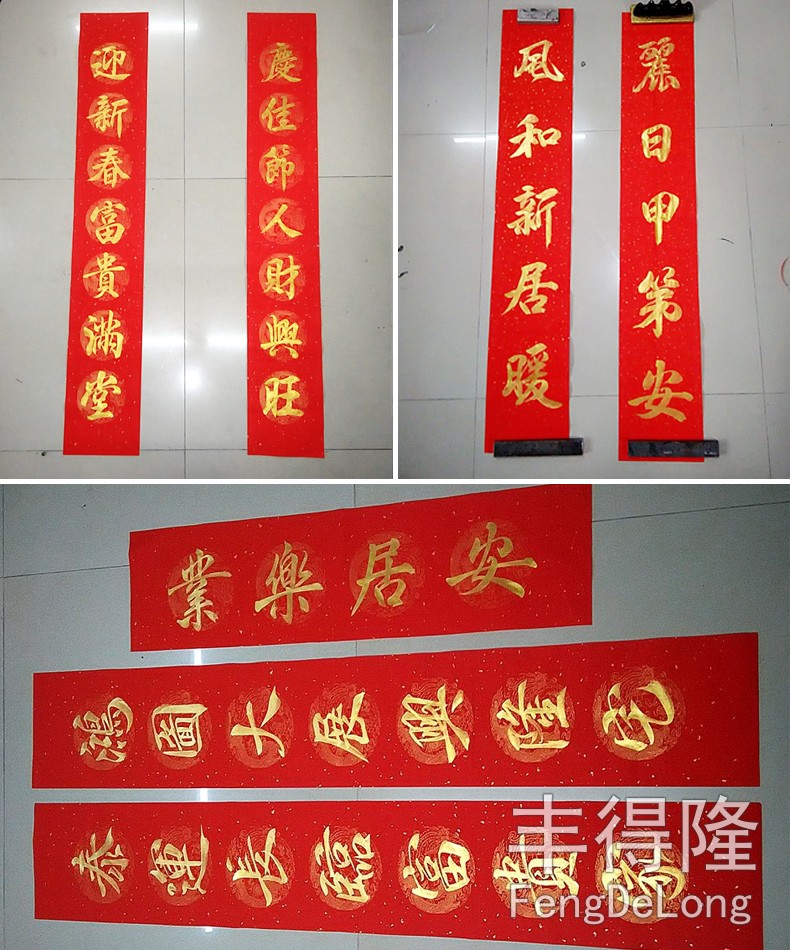 慶佳節人財興旺
迎新春富貴滿堂
麗日甲第安
風和新居暖
安居樂業
鴻圖大展興隆宅
泰運長臨富貴家
丰得隆
FengDeLong